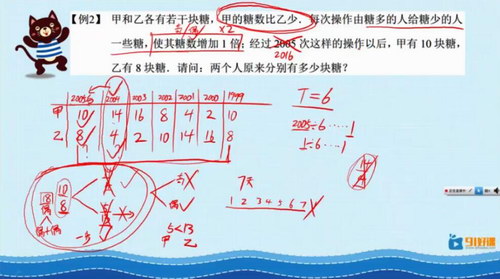 【例2】 甲和乙各有若干块糖，甲的糖数比乙少．每次操作由糖多的人给糖少的人
一些糖，使其糖数增加1倍；经过2005次这样的操作以后，甲有10块糖，
×2
2016
乙有8块糖．请问：两个人原来分别有多少块糖？
2005 2004 2003 2002 2001 2000 1999
甲 10 14 16 8 4 2 10
乙 8 4 2 10 14 16 8
T=6
2005÷6……1
1÷6……1
7天
1 2 3 4 5 6 7
18 10
8
偶
偶+偶
一步
5<13
甲 乙